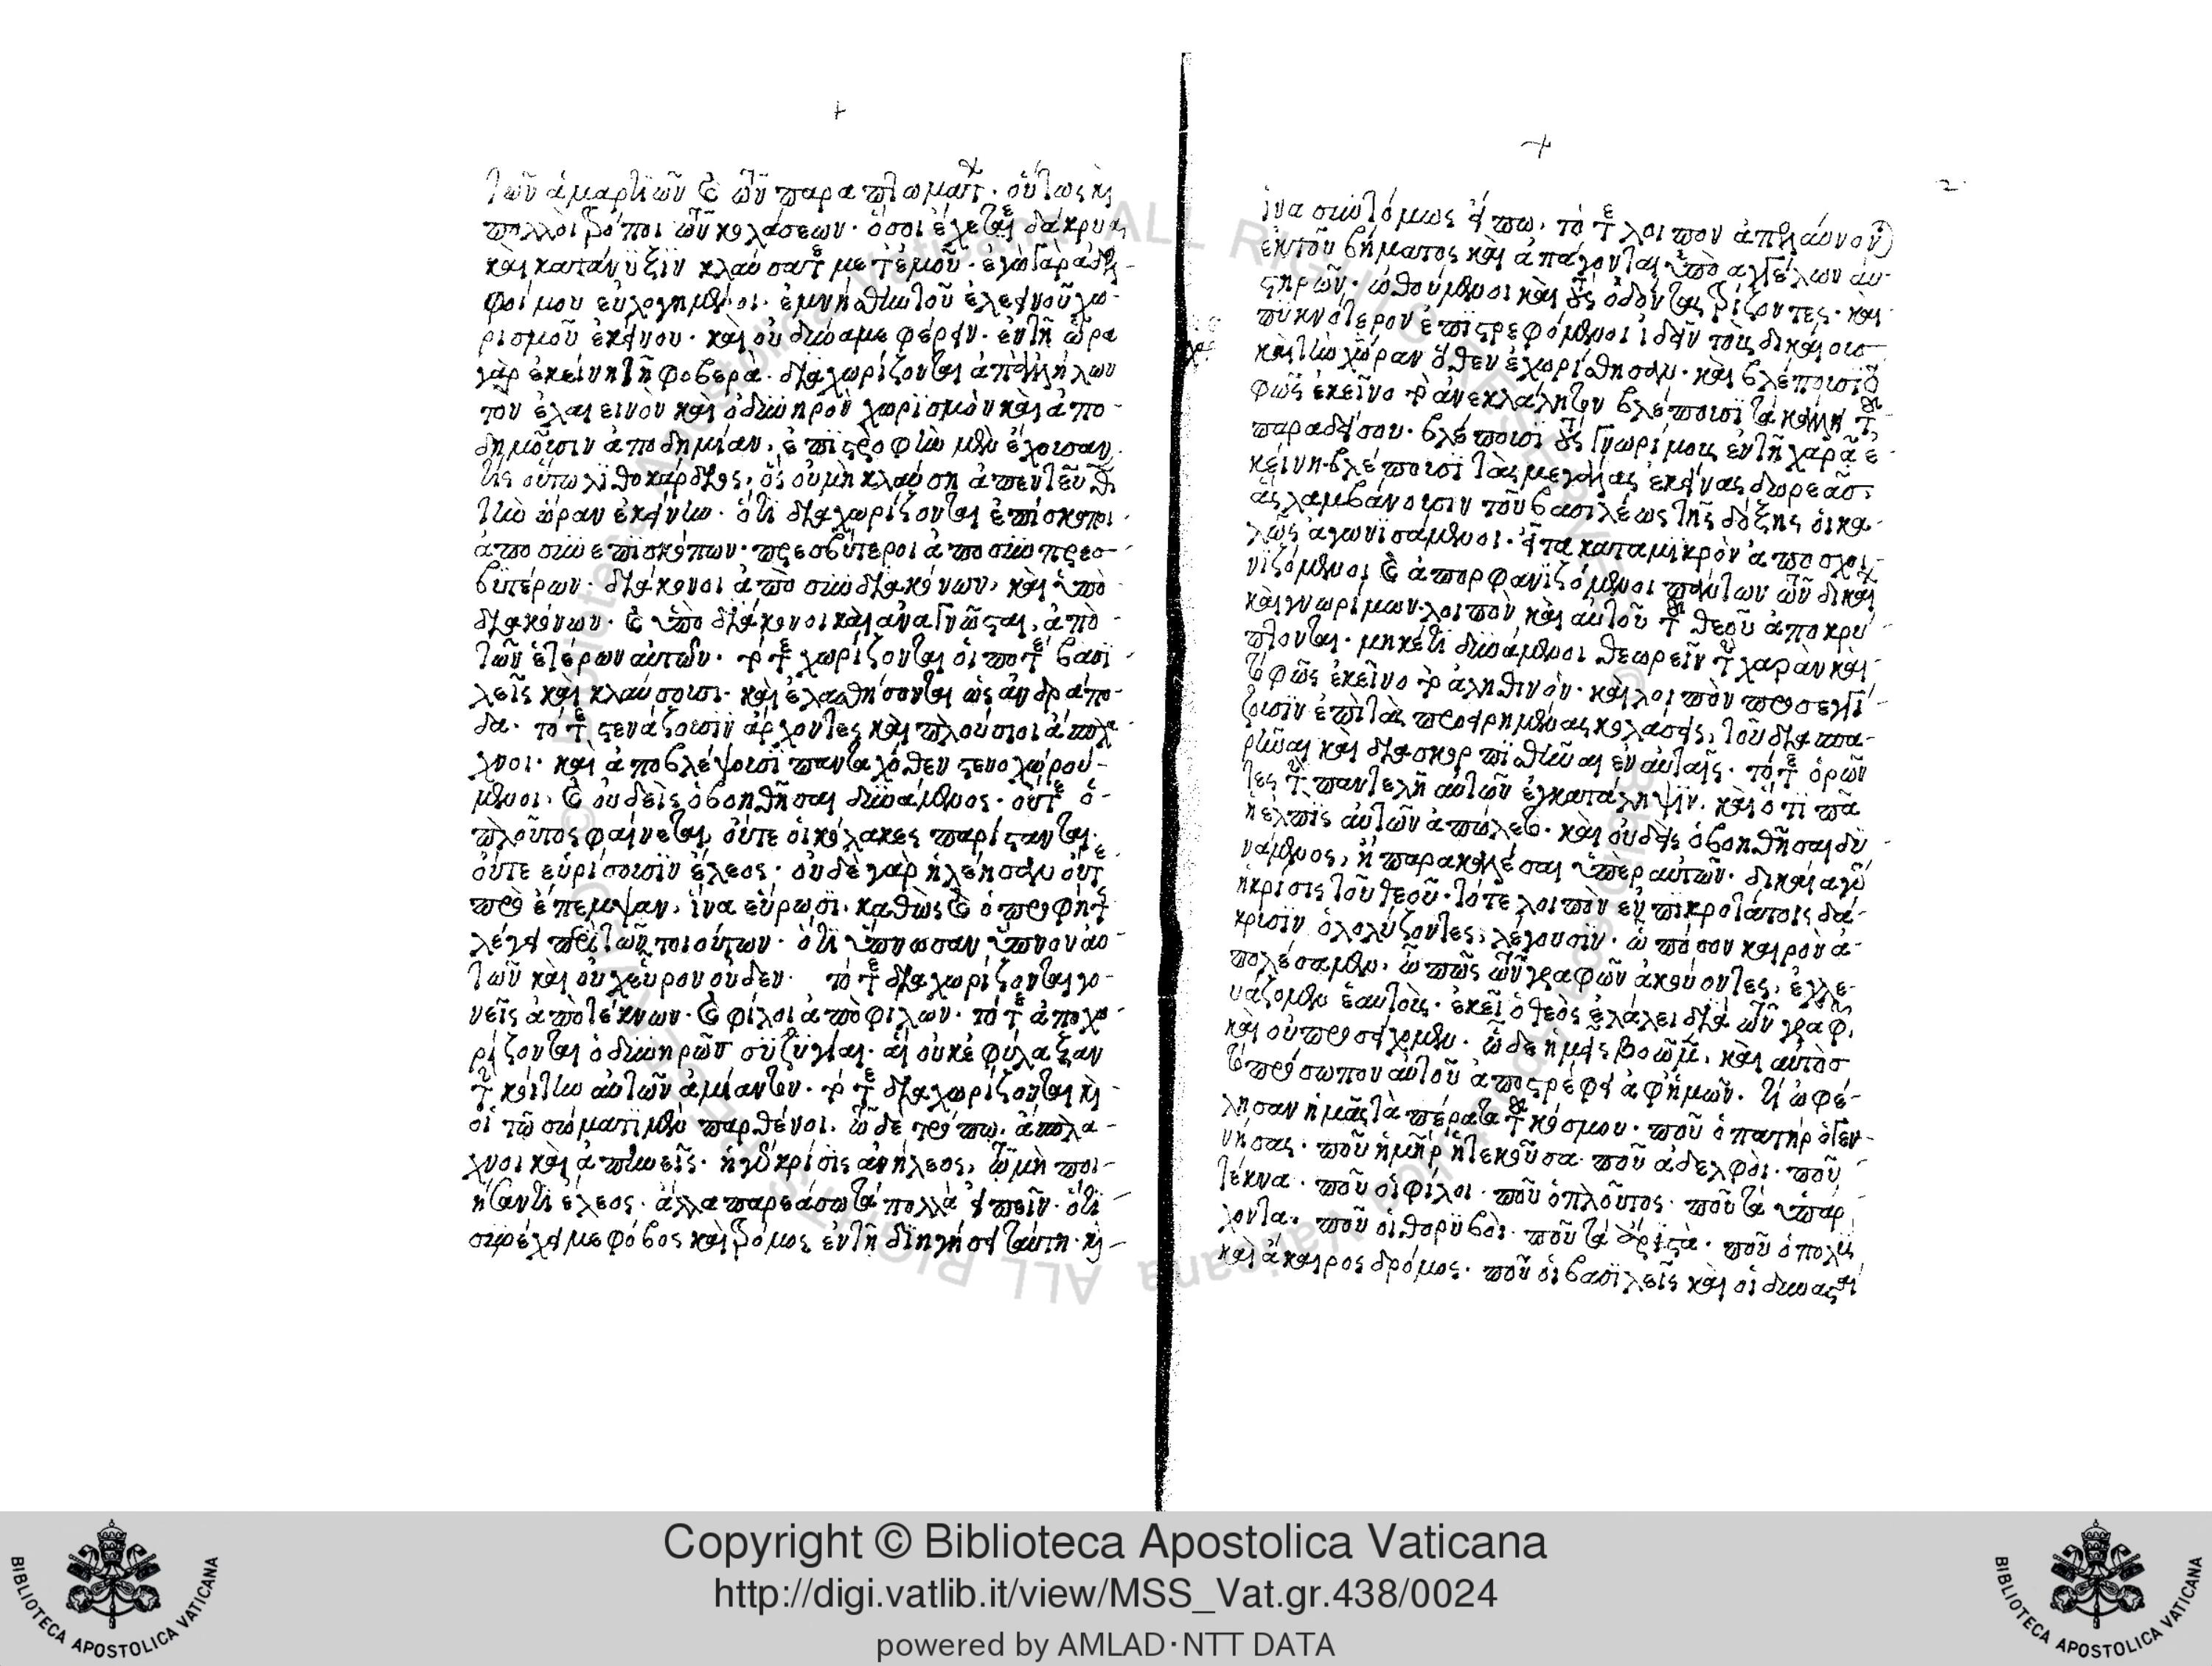 +
τῶν ἁμαρτιῶν καὶ τῶν παραπτωμάτων· οὕτως καὶ
πολλοὶ τρόποι τῶν κολάσεων· ὅσοι ἔχετε δάκρυα
καὶ κατάνυξιν κλαύσατε μετ' ἐμοῦ· ἐγὼ γὰρ ἀδελ-
φοί μου εὐλογημένοι· ἐμνήσθην τοῦ ἐλεεινοῦ χω-
ρισμοῦ ἐκείνου· καὶ οὐ δύναμε φέρειν· ἐν τῇ ὥρα
γὰρ ἐκείνη τῇ φοβερᾶ· διαχωρίζονται ἀπ' ἀλλήλων
τὸν ἐλαιεινὸν καὶ ὀδυνηρὸν χωρισμὸν καὶ ἀπο-
δημοῦσιν ἀποδημίαν, ἐπιστροφὴν μὴ ἔχουσαν.
τίς οὕτω λιθοκάρδιος, ὃς οὐ μὴ κλαύση ἀπεντεῦθεν
τὴν ὥραν ἐκείνην· ὅτι διαχωρίζονται ἐπίσκοποι
ἀπὸ συνεπισκόπων· πρεσβύτεροι ἀπὸ συνπρεσ-
βυτέρων· διάκονοι ἀπὸ συνδιακόνων, καὶ ὑπο
διακόνων· καὶ ὑποδιάκονοι καὶ ἀναγνῶσται, ἀπὸ
τῶν ἑτέρων αὐτῶν· τότε χωρίζονται οἱ ποτὲ βασι
λεῖς καὶ κλαύσουσι· καὶ ἐλασθήσονται ὡς ἀνδράπο-
δα· τότε στενάζουσιν ἄρχοντες καὶ πλούσιοι ἀπολ
χνοι· καὶ ἀποβλέψουσι πανταχόθεν στενοχωρού-
μενοι· καὶ οὐδεὶς ὁ βοηθῆσαι δυνάμενος· οὔτε ὁ
πλοῦτος φαίνεται, οὔτε οἱ κόλακες παρίστανται·
οὔτε εὑρίσουσιν ἔλεος· οὐδὲ γὰρ ἠλεήσαν οὔτε
προέπεμψαν, ἵνα εὕρωσι· καθὼς καὶ ὁ προφήτης
λέγει περὶ τῶν τοιούτων· ὅτι ὕπνωσαν ὕπνον αὐ
τῶν καὶ οὐχ εὗρον οὐδέν· τότε διαχωρίζονται γο-
νεῖς ἀπὸ τέκνων· καὶ φίλοι ἀπὸ φίλων· τότε ἀποχω
ρίζονται ὀδυνηρῶς συζυγίαι· αἱ οὐκ ἐφύλαξαν
τὴν κοίτην αὐτῶν ἀμίαντον· τότε διαχωρίζονται καὶ
οἱ τῷ σώματι μὲν παρθένοι, τῷ δὲ τρόπω, ἄσπλα-
χνοι καὶ ἀπηνεῖς· ἡ γὰρ κρίσις ἀνήλεος, τῷ μὴ ποι-
ήσαντι ἔλεος· ἀλλὰ παρεάσω τὰ πολλὰ εἰπεῖν· ὅτι
συνέχει με φόβος καὶ τρόμος ἐν τῇ διηγήσει ταύτη· καὶ
+
2
ἵνα συντόμως εἴπω, τότε λοιπὸν ἀπελαύνον
ἐκ τοῦ βήματος καὶ ἀπάγονται ὑπὸ ἀγγέλων αὐ-
στηρῶν· ὠθούμενοι καὶ τοὺς ὀδόντας τρίζοντες· καὶ
πυκνότερον ἐπιστρεφόμενοι ἰδεῖν τοὺς δικαίους
καὶ τὴν χῶραν ὅθεν ἐχωρίσθησαν· καὶ βλέπουσι τὸ
φῶς ἐκεῖνο τὸ ἀνεκλάλητον βλέπουσι τὰ κάλλη τοῦ
παραδείσου· βλέπουσι τοὺς γνωρίμους ἐν τῇ χαρᾶ ἐ
κείνη· βλέπουσι τὰς μεγάλας ἐκείνας δωρεάς,
ἃς λαμβάνουσιν τοῦ βασιλέως τῆς δόξης οἱ κα-
λῶς ἀγωνισάμενοι· εἶτα κατὰ μικρὸν ἀποσχοι-
νιζόμενοι καὶ ἀπορφανιζόμενοι πάντων τῶν δικαίων
καὶ γνωρίμων· λοιπὸν καὶ αὐτοῦ τοῦ θεοῦ ἀποκρύ
πτονται· μηκέτι δυνάμενοι θεωρεῖν τὴν χαρὰν καὶ
τὸ φῶς ἐκεῖνο τὸ ἀληθινόν· καὶ λοιπὸν προσεγγί
ζουσιν ἐπὶ τὰς προειρημένας κολάσεις, τοῦ διασπα-
ρῆναι καὶ διασκορπισθῆναι ἐν αὐταῖς· τότε ὁρῶν
τες τὴν παντελῆ αὐτῶν ἐγκατάληψιν. καὶ ὅτι πᾶσα
ἡ ἐλπὶς αὐτῶν ἀπώλετο· καὶ οὐδεὶς ὁ βοηθῆσαι δυ
νάμενος, ἢ παρακαλέσαι ὑπὲρ αὐτῶν· δικαία γὰρ
ἡ κρίσις τοῦ θεοῦ· τότε λοιπὸν ἐν πικροτάτοις δά-
κρυσιν ὀλολύζοντες, λέγουσιν· ὢ πόσον καιρὸν ἀ-
πολέσαμεν, ὢ πῶς τῶν γραφῶν ἀκούοντες, ἐχλε-
υάζομεν ἑαυτούς· ἐκεῖ ὁ θεὸς ἐλάλει διὰ τῶν γραφῶν,
καὶ οὐ προσείχομεν· ὧδε ἡμεῖς βοῶμεν, καὶ αὐτὸς
τὸ πρόσωπον αὐτοῦ ἀποστρέφει ἀφ' ἡμῶν. τί ὠφέ-
λησαν ἡμᾶς τὰ πέρατα τοῦ κόσμου· ποῦ ὁ πατὴρ ὁ γεν-
νήσας· ποῦ ἡ μήτηρ ἡ τεκοῦσα· ποῦ ἀδελφοί· ποῦ
τέκνα· ποῦ οἱ φίλοι· ποῦ ὁ πλοῦτος· ποῦ τὰ ὑπάρ
χοντα· ποῦ οἱ θορύβοι· ποῦ τὰ ἄριστα· ποῦ ὁ πολὺς
καὶ ἄκαιρος δρόμος· ποῦ οἱ βασιλεῖς καὶ οἱ δυνάσται
Copyright © Biblioteca Apostolica Vaticana
http://digi.vatlib.it/view/MSS_Vat.gr.438/0024
powered by AMLAD·NTT DATA
BIBLIOTECA APOSTOLICA VATICANA
BIBLIOTECA APOSTOLICA VATICANA